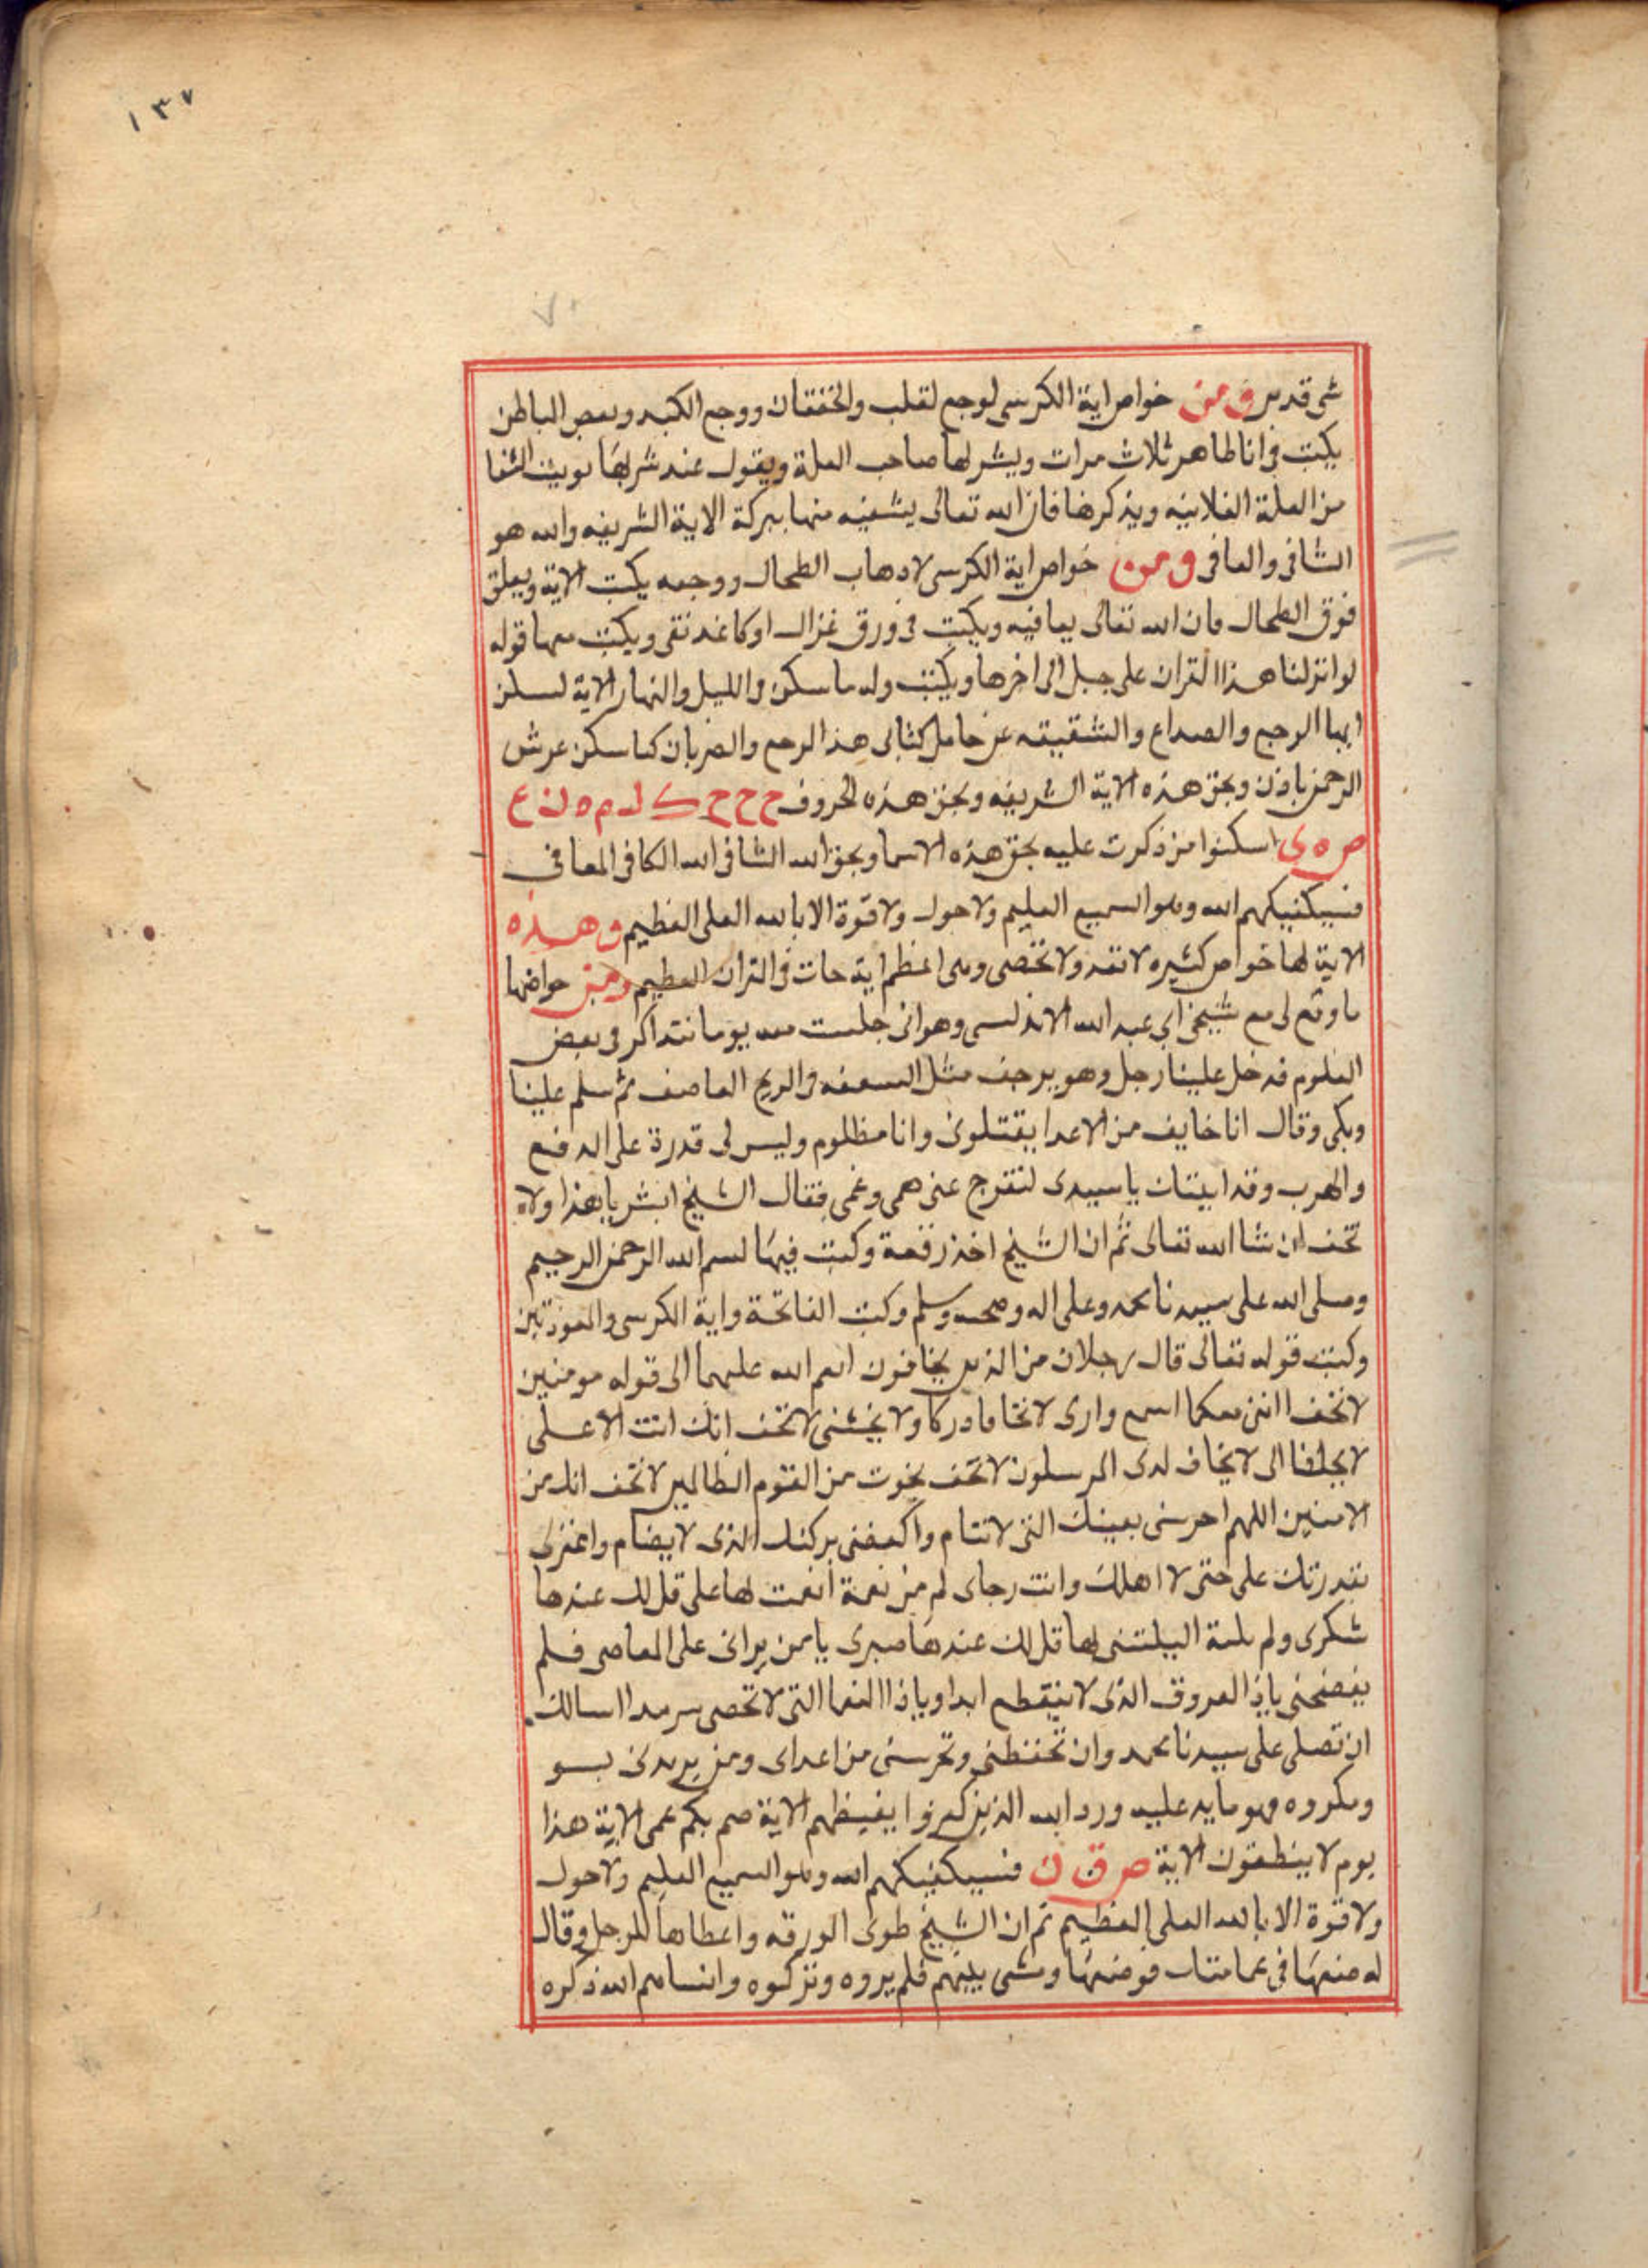 ١٣٧
٧٠
شى قدير ومن خواص اية الكرسى لوجع لقلب والخفقان ووجع الكبد وبعص الباطن
يكتب فى انا طاهر ثلاث مرات ويشربها صاحب العلة ويقول عند شربها نويت الشفا
من العلة الفلانيه ويذكرها فان الله تعالى يشفيه منها ببركة الاية الشريفه والله هو
الشافى والعافى ومن خواص اية الكرسى لاذهاب الطحال ووجعه يكتب الاية ويعلق
فوق الطحال فان الله تعالى يعافيه ويكتب فى ورق غزال او كاغد نقى ويكتب معها قوله
لو انزلنا هذا القران على جبل الى اخرها ويكتب وله ما سكن فى الليل والنهار الاية لسكن
ايها الوجع والصداع والشقيقه عن حامل كتابى هذا الوجع والضربان كما سكن عرش
الرحمن باذن وبحق هذه الاية الشريفه وبحق هذه الحروف ح ح ح ك ل م ه ن ع
ص ه ى اسكنوا من ذكرت عليه بحق هذه الاسما وبحق الله الشافى الله الكافى المعافى
فسيكفيكهم الله وهو السميع العليم ولا حول ولا قوة الا بالله العلى العظيم وهذه
الاية لها خواص كثيره لا تعد ولا تحصى وهى اعظم اية جات فى القران العظيم ومن خواصها
ما وقع لى مع شيخى ابى عبد الله الاندلسى وهو انى جلست معه يوما نتذاكر فى بعض
العلوم فدخل علينا رجل وهو يرجف مثل السعفه فى الريح العاصف ثم سلم علينا
وبكى وقال انا خايف من الاعدا يقتلونى وانا مظلوم وليس لى قدرة على الدفع
والهرب وقد اتيتك يا سيدى لتفرج عنى همى وغمى فقال الشيخ ابشر يا هذا ولا
تخف ان شا الله تعالى ثم ان الشيخ اخذ رقعة وكتب فيها بسم الله الرحمن الرحيم
وصلى الله على سيدنا محمد وعلى اله وصحبه وسلم وكتب الفاتحة واية الكرسى والمعوذتين
وكتب قوله تعالى قال رجلان من الذين يخافون انعم الله عليهما الى قوله مومنين
لا تخف اننى معكما اسمع وارى لا تخاف دركا ولا تخشى لا تخف انك انت الاعلى
لا يخاف لدى المرسلون لا تخف نجوت من القوم الظالمين لا تخف انك من
الامنين اللهم احرسنى بعينك التى لا تنام واكنفنى بركنك الذى لا يضام واغفر لى
بقدرتك على حتى لا اهلك وانت رجاى كم من نعمة انعمت بها على قل لك عندها
شكرى وكم بلية ابتليتنى بها قل لك عندها صبرى يا من يرانى على المعاصى فلم
يفضحنى يا ذا المعروف الذى لا ينقطع ابدا ويا ذا النعما التى لا تحصى سرمدا اسالك
ان تصلى على سيدنا محمد وان تحفظنى وتحرسنى من اعداى ومن يريدنى بسو
ومكروه ورد الله الذين كفروا بغيظهم الاية صم بكم عمى الاية هذا
يوم لا ينطقون الاية ص ق ن فسيكفيكهم الله وهو السميع العليم ولا حول
ولا قوة الا بالله العلى العظيم ثم ان الشيخ طوى الورقه واعطاها للرجل وقال
له ضعها فى عمامتك فوضعها ومشى بينهم فلم يروه وتركوه وانساهم الله ذكره